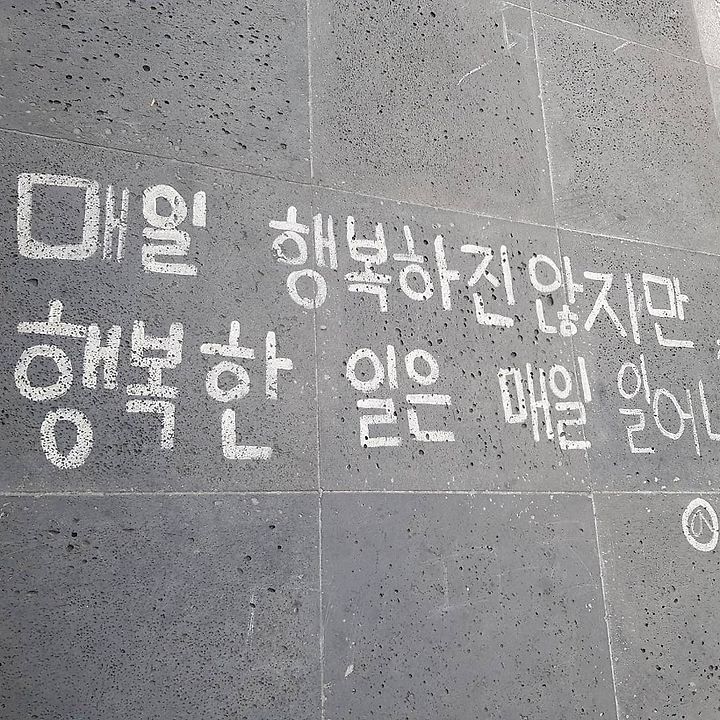 매일 행복하진 않지만
행복한 일은 매일 일어